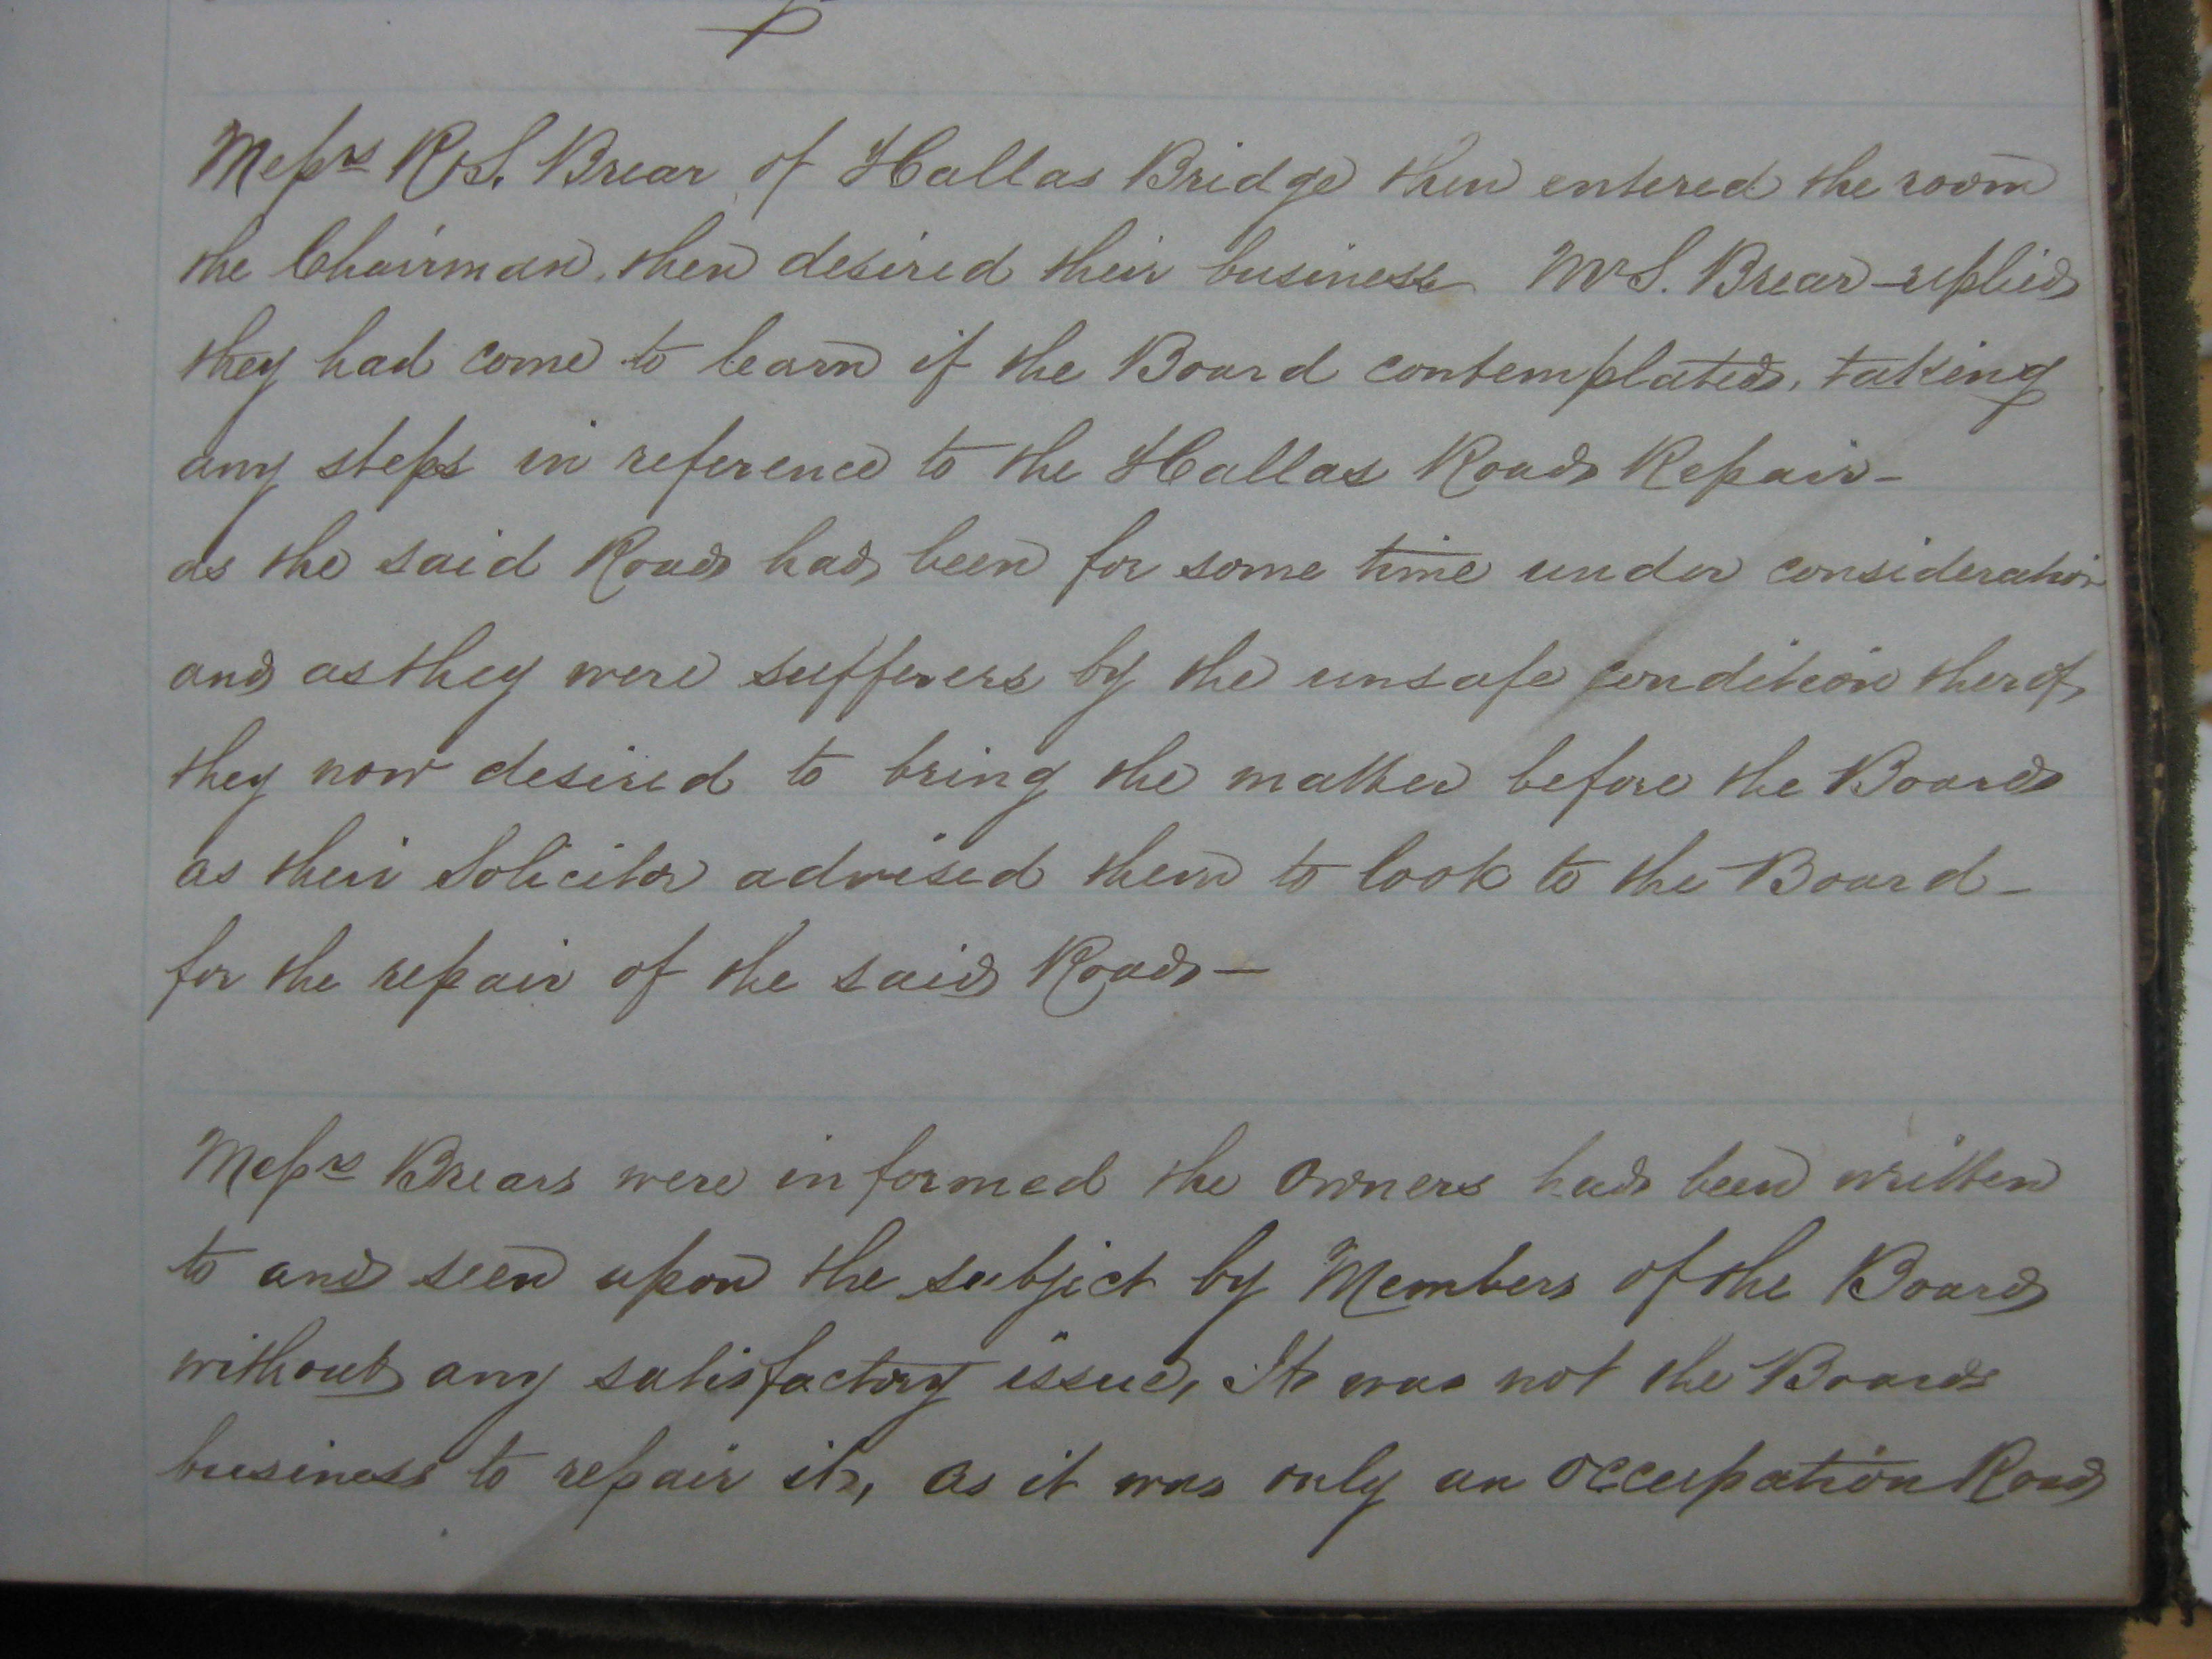 Messrs R & S. Brear of Hallas Bridge then entered the room
the Chairman, then desired their business Mr S. Brear replied
they had come to learn if the Board contemplated, taking
any steps in reference to the Hallas Road Repair -
as the said Road had been for some time under consideration
and as they were sufferers by the unsafe condition therof
they now desired to bring the matter before the Board
as their Solicitor advised them to look to the Board -
for the repair of the said Road -
Messrs Brears were informed the owners had been written
to and seen upon the subject by Members of the Board
without any satisfactory issue, It was not the Boards
business to repair it, as it was only an occupation Road